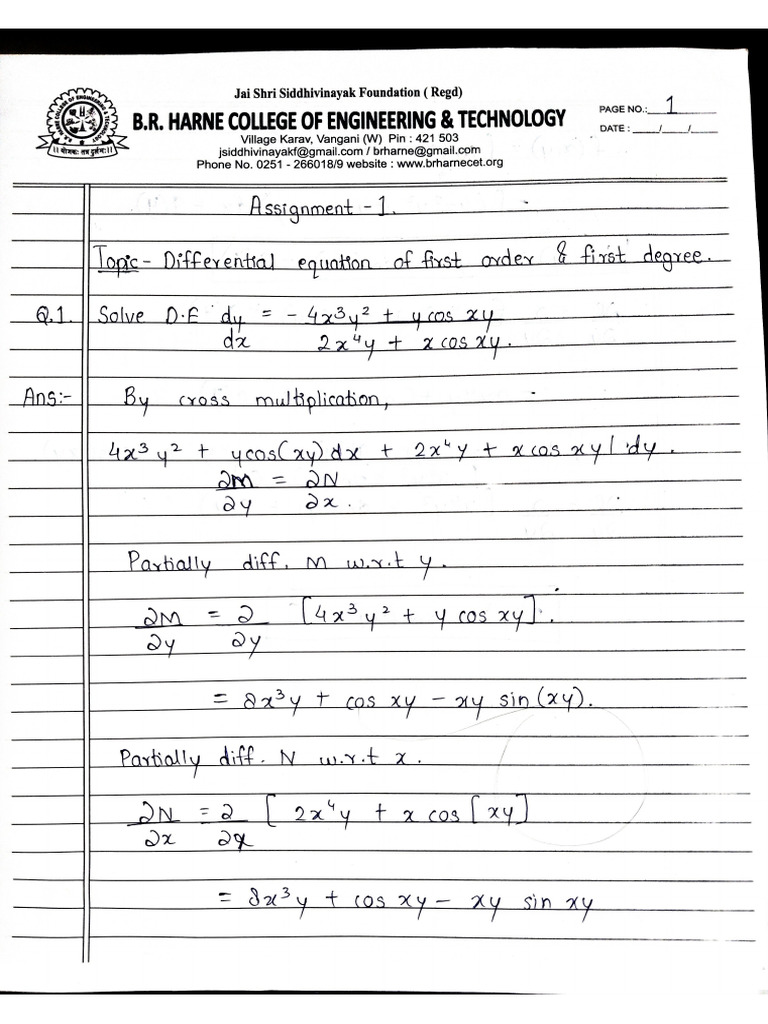 Jai Shri Siddhivinayak Foundation ( Regd)
B.R. HARNE COLLEGE OF ENGINEERING & TECHNOLOGY
Village Karav, Vangani (W) Pin : 421 503
jsiddhivinayakf@gmail.com / brharne@gmail.com
Phone No. 0251 - 266018/9 website : www.brharnecet.org
PAGE NO.: 1
DATE : / /
Assignment - 1.
Topic - Differential equation of first order & first degree.
Q.1. Solve D.E dy/dx = - 4x³y² + y cos xy / 2x⁴y + x cos xy.
Ans:- By cross multiplication,
4x³y² + ycos(xy)dx + 2x⁴y + x cos xy | dy.
∂M/∂y = ∂N/∂x.
Partially diff. M w.r.t y.
∂M/∂y = ∂/∂y [4x³y² + y cos xy].
= 8x³y + cos xy - xy sin (xy).
Partially diff. N w.r.t x.
∂N/∂x = ∂/∂x [ 2x⁴y + x cos [xy]
= 8x³y + cos xy - xy sin xy